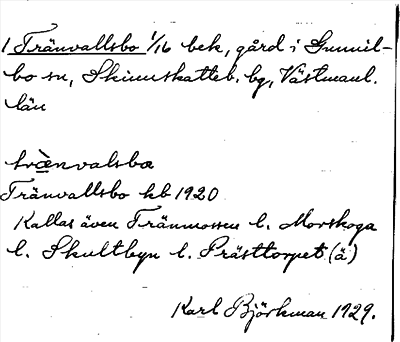 1 Tränvallsbo 1/16 bek, gård i Gunnil-
bo sn, Skinnskatteb. bg, Västmanl.
län
tränvalsbɷ
Tränvallsbo kb 1920
Kallas även Tränmossen l. Morskoga
l. Skultbyn l. Prästtorpet (ä)
Karl Björkman 1929.